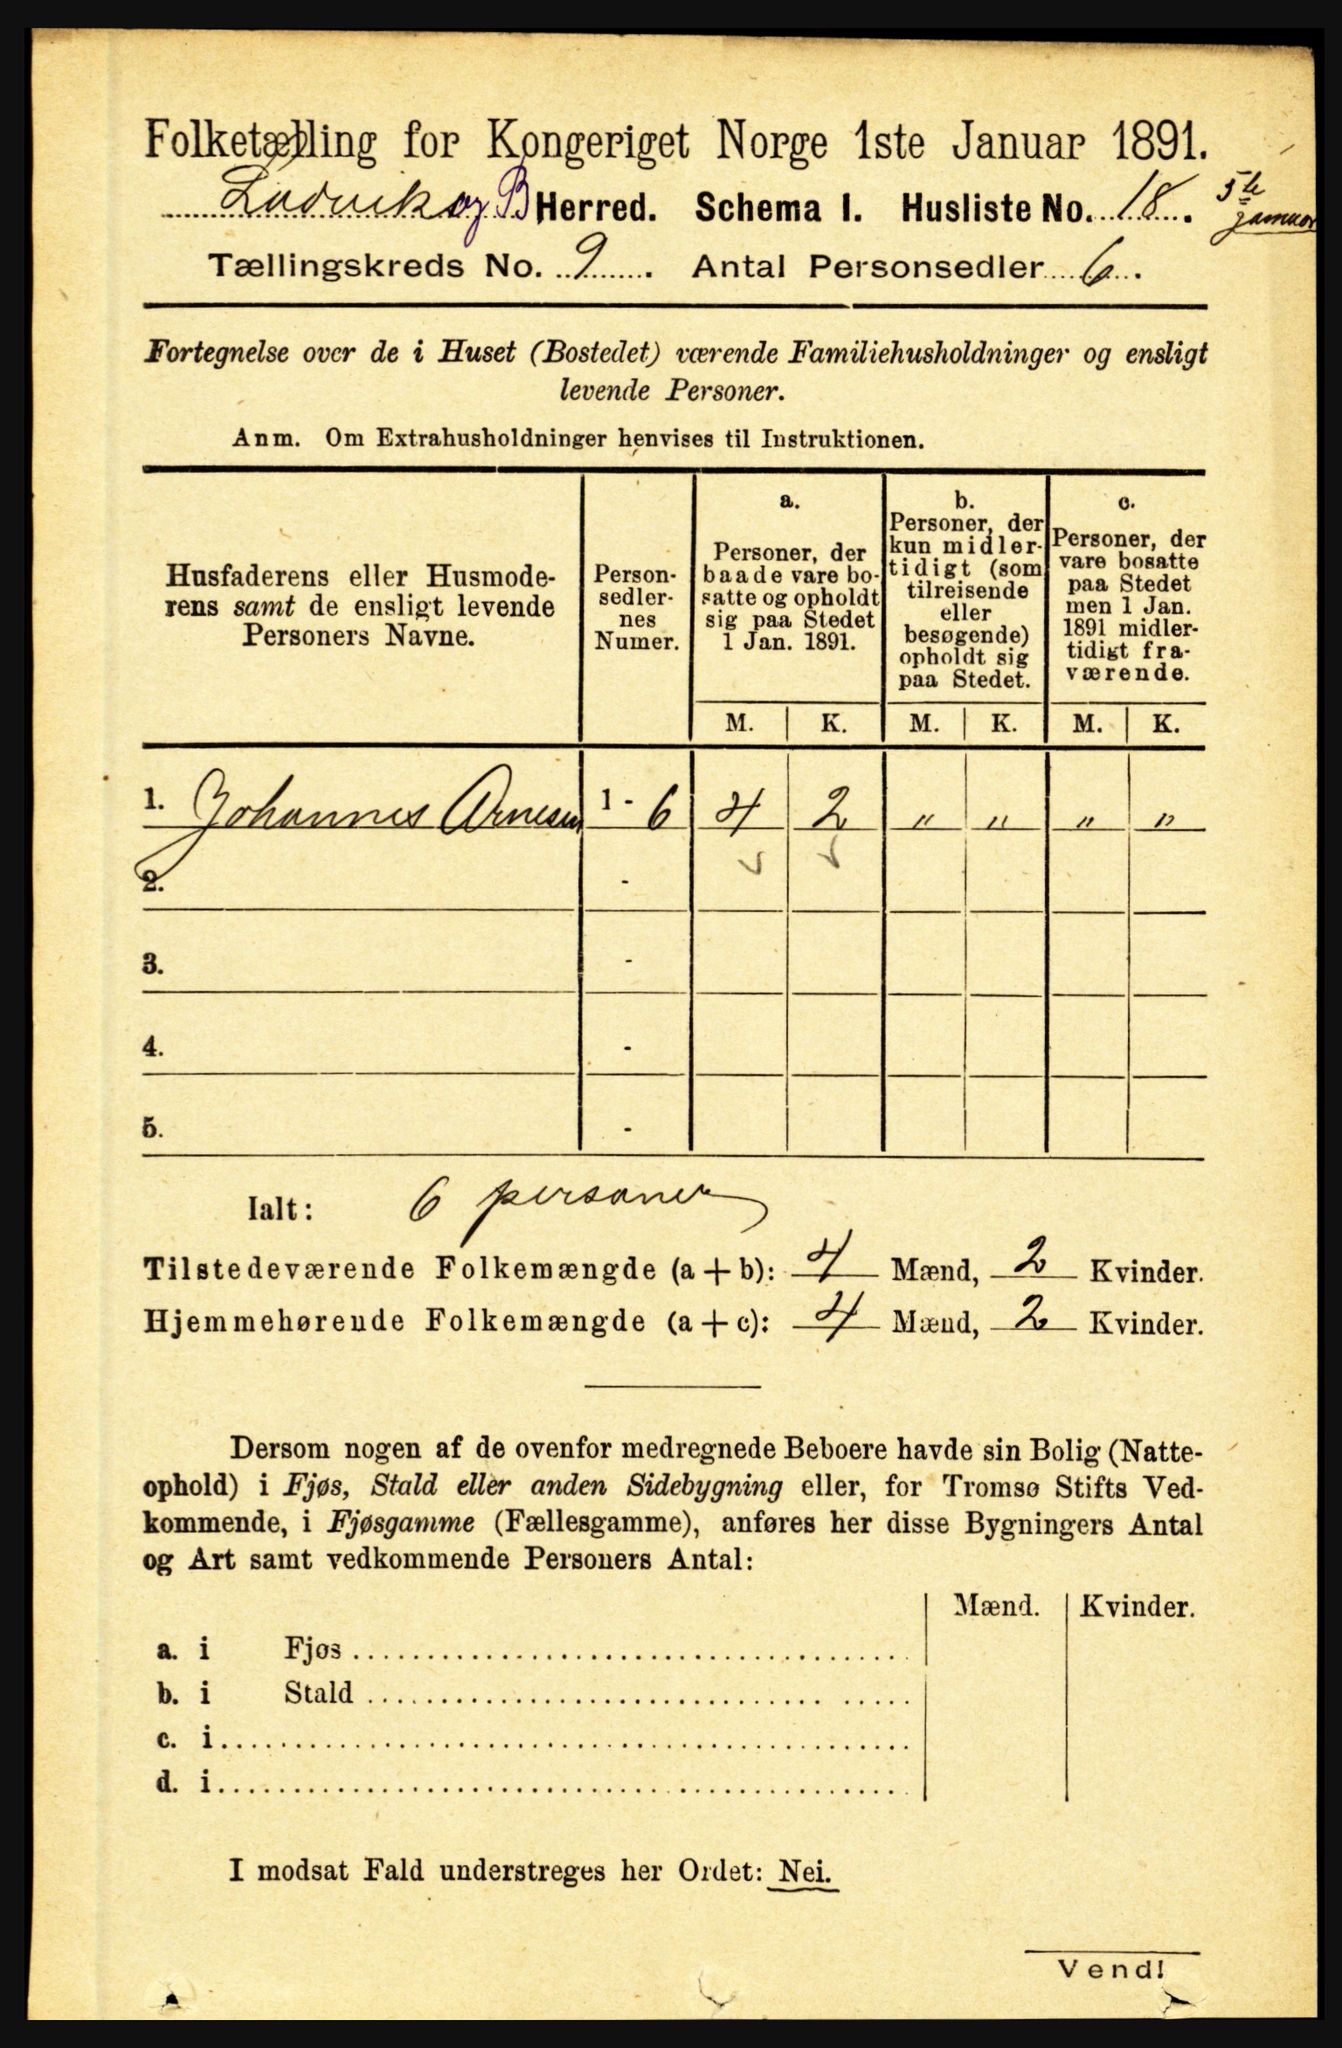 Folketælling for Kongeriget Norge 1ste Januar 1891.
Ladvik og B Herred. Schema I. Husliste No. 18. 5te Januar
Tællingskreds No. 9. Antal Personsedler 6.
Fortegnelse over de i Huset (Bostedet) værende Familiehusholdninger og ensligt
levende Personer.
Anm. Om Extrahusholdninger henvises til Instruktionen.
Husfaderens eller Husmode-
rens samt de ensligt levende
Personers Navne.
Person-
sedler-
nes
Numer.
a.
Personer, der
baade vare bo-
satte og opholdt
sig paa Stedet
1 Jan. 1891.
b.
Personer, der
kun midler-
tidigt (som
tilreisende
eller
besøgende)
opholdt sig
paa Stedet.
c.
Personer, der
vare bosatte
paa Stedet
men 1 Jan.
1891 midler-
tidigt fra-
værende.
M. K. M. K. M. K.
1. Johannes Arnesen 1 - 6 4 2 " " " "
2. -
3. -
4. -
5. -
Ialt: 6 personer
Tilstedeværende Folkemængde (a + b): 4 Mænd, 2 Kvinder.
Hjemmehørende Folkemængde (a + c): 4 Mænd, 2 Kvinder.
Dersom nogen af de ovenfor medregnede Beboere havde sin Bolig (Natte-
ophold) i Fjøs, Stald eller anden Sidebygning eller, for Tromsø Stifts Ved-
kommende, i Fjøsgamme (Fællesgamme), anføres her disse Bygningers Antal
og Art samt vedkommende Personers Antal:
Mænd. Kvinder.
a. i Fjøs
b. i Stald
c. i
d. i
I modsat Fald understreges her Ordet: Nei.
Vend!